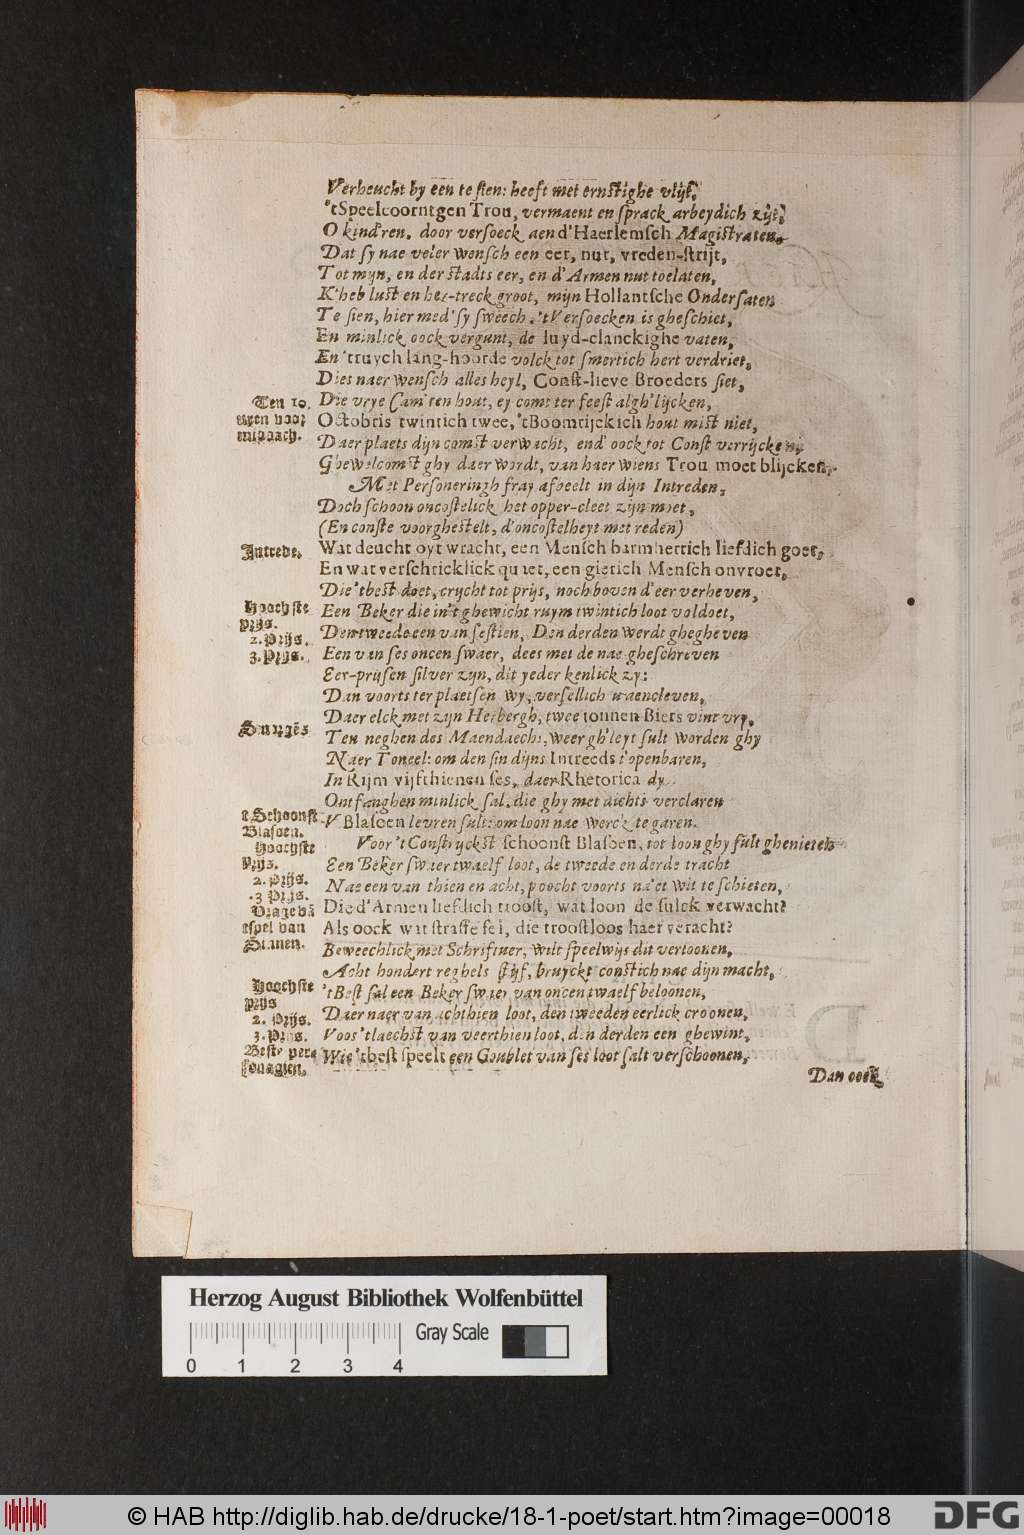 Verheucht by een te sien: heeft met ernstighe vlijt,
'tSpeelcoorntgen Trou, vermaent en sprack arbeydich zijt,
O kind'ren, door versoeck aend'Haerlemsch Magistraten,
Dat sy nae veler wensch een eer, nut, vreden-strijt,
Tot mijn, en der stadts eer, en d'Armen nut toelaten,
K'heb lust en her-treck groot, mijn Hollantsche Ondersaten
Te sien, hier med' sy sweech. 'tVersoecken is gheschiet,
En minlick oock vergunt, de luyd-clanckighe vaten,
En 'truych lang-hoorde volck tot smertich hert verdriet,
Dies naer wensch alles heyl, Const-lieve Broeders siet,
Ten 10. Die vrye Cam'ren hout, ey comt ter feest algh'lijcken,
uren voor Octobris twintich twee, 'tBoomrijck ich hout mist niet,
middach. Daer plaets dijn comst verwacht, end' oock tot Const verrijcken,
Ghewelcomst ghy daer wordt, van haer wiens Trou moet blijcken,
Met Personeringh fray afbeelt in dijn Intreden,
Doch schoon oncostelick het opper-cleet zijn moet,
(En conste voorghestelt, d'oncostelheyt met reden)
Intrede. Wat deucht oyt wracht, een Mensch barmhertich liefdich goet,
En wat verschricklick quiet, een gierich Mensch onvroet,
Die 'tbest doet, crijcht tot prijs, noch boven d'eer verheven,
Hoochste Een Beker die in't ghewicht ruym twintich loot voldoet,
prijs.
2. Prijs. Den tweede een van sestien, Den derden werdt ghegheven
3. Prijs. Een van ses oncen swaer, dees met de nae gheschreven
Eer-prijsen silver zyn, dit yeder kenlick zy:
Dan voorts ter plaetsen wy, versellich u aencleven,
Daer elck met zijn Herbergh, twee tonnen Biers vint vry,
Smorgēs Ten neghen des Maendaechs, weer gh'leyt sult worden ghy
Naer Toneel: om den sin dijns Intreeds t'openbaren,
In Rijm vijfthienen ses, daer Rhetorica dy
Ontfanghen minlick sal, die ghy met dichts verclaren
't Schoonst V Blasoen levren sult: om loon nae werck te garen.
Blasoen.
Hoochste Voor 't Constrijckst schoonst Blasoen, tot loon ghy sult ghenieten
Prijs. Een Beker swaer twaelf loot, de tweede en derde tracht
2. Prijs. Nae een van thien en acht, poocht voorts na'et wit te schieten,
3 Prijs.
Vrage vā Die d'Armen liefdich troost, wat loon de sulck verwacht?
tspel van Als oock wat straffe fel, die troostloos haer veracht?
Sinnen. Beweechlick met Schriftuer, wilt speelwijs dit vertoonen,
Acht hondert reghels stijf, bruyckt constich nae dijn macht,
Hoochste 'tBest sal een Beker swaer van oncen twaelf beloonen,
prijs
2. Prijs. Daer naer van achthien loot, den tweeden eerlick croonen,
3. Prijs. Voor 'tlaechst van veerthien loot, den derden een ghewint,
Beste per- Wie 'tbest speelt een Goublet van ses loot salt verschoonen,
sonagien.
Dan oock
Herzog August Bibliothek Wolfenbüttel
Gray Scale
0 1 2 3 4
© HAB http://diglib.hab.de/drucke/18-1-poet/start.htm?image=00018
DFG